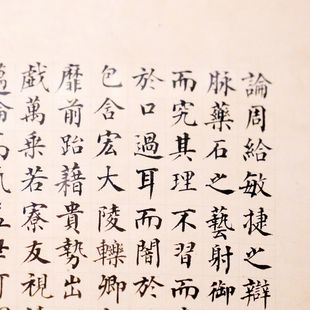 論周給敏捷之辯
脉藥石之藝射御
而究其理不習而
於口過耳而闇於
包含宏大陵轢卿
靡前跆藉貴勢出
戲萬乘若寮友視
倫高氣世可